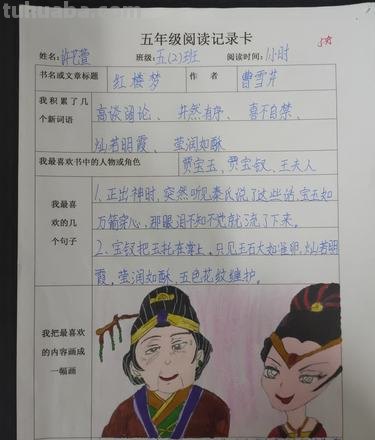 tuhuaba.com
五年级阅读记录卡
姓名: 班级:五(2)班 阅读时间:1小时
书名或文章标题 红楼梦 作者 曹雪芹
我积累了几个新词语
高谈阔论、井然有序、喜不自禁、
灿若明霞、莹润如酥
我最喜欢书中的人物或角色 贾宝玉、贾宝钗、王夫人
我最喜欢的几个句子
1、正出神时,突然听见秦氏说了这些话,宝玉如
万箭穿心,那眼泪不知不觉就流了下来。
2、宝钗把玉托在掌上。只见玉石大如雀卵,灿若明
霞,莹润如酥、五色花纹缠护。
我把最喜欢的内容画成一幅画